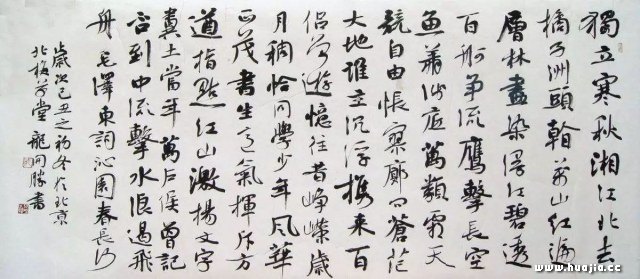 獨立寒秋湘江北去
橘子洲頭看萬山紅遍
層林盡染漫江碧透
百舸爭流鷹擊長空
魚翔淺底萬類霜天
競自由悵寥廓問蒼茫
大地誰主沉浮攜來百
侶曾遊憶往昔崢嶸歲
月稠恰同學少年風華
正茂書生意氣揮斥方
遒指點江山激揚文字
糞土當年萬戶侯曾記
否到中流擊水浪遏飛
舟毛澤東詞沁園春長沙
歲次己丑之初冬於北京
堂龍開勝書
www.huajia.cc